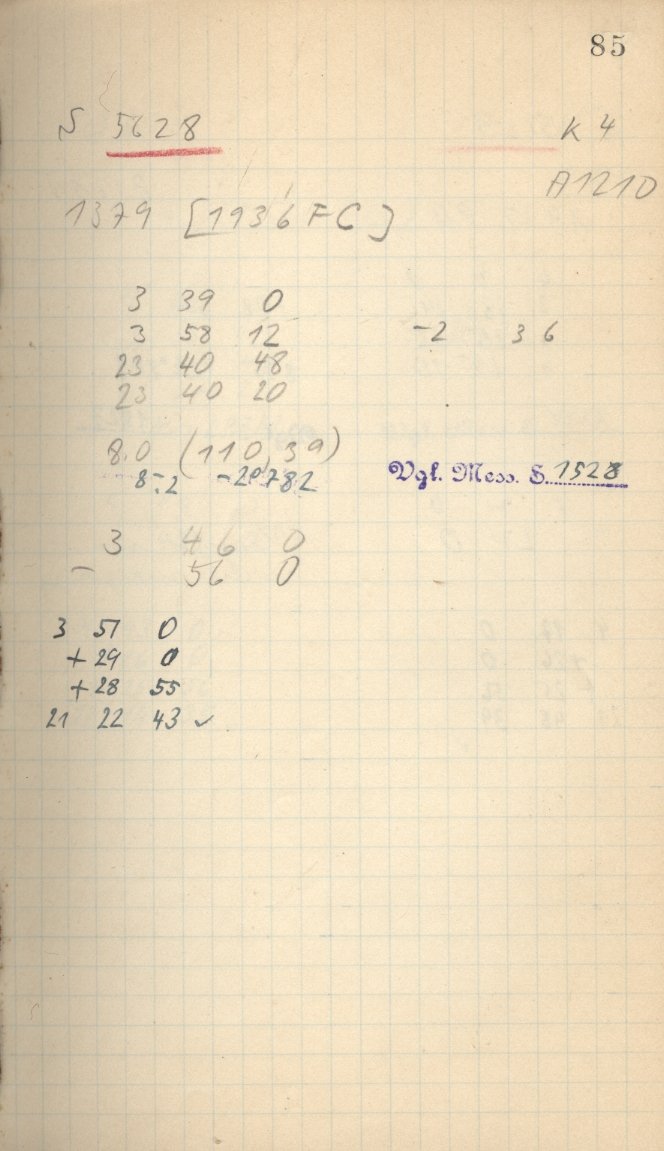 85
S 5628 K 4
A1210
1379 [1936 FC]
3 39 0
3 58 12 -2 36
23 40 48
23 40 20
8.0 (110, 39)
8.2 -20.782
Vgl. Mess. S. 1528
3 46 0
- 56 0
3 51 0
+29 0
+28 55
21 22 43 ✓